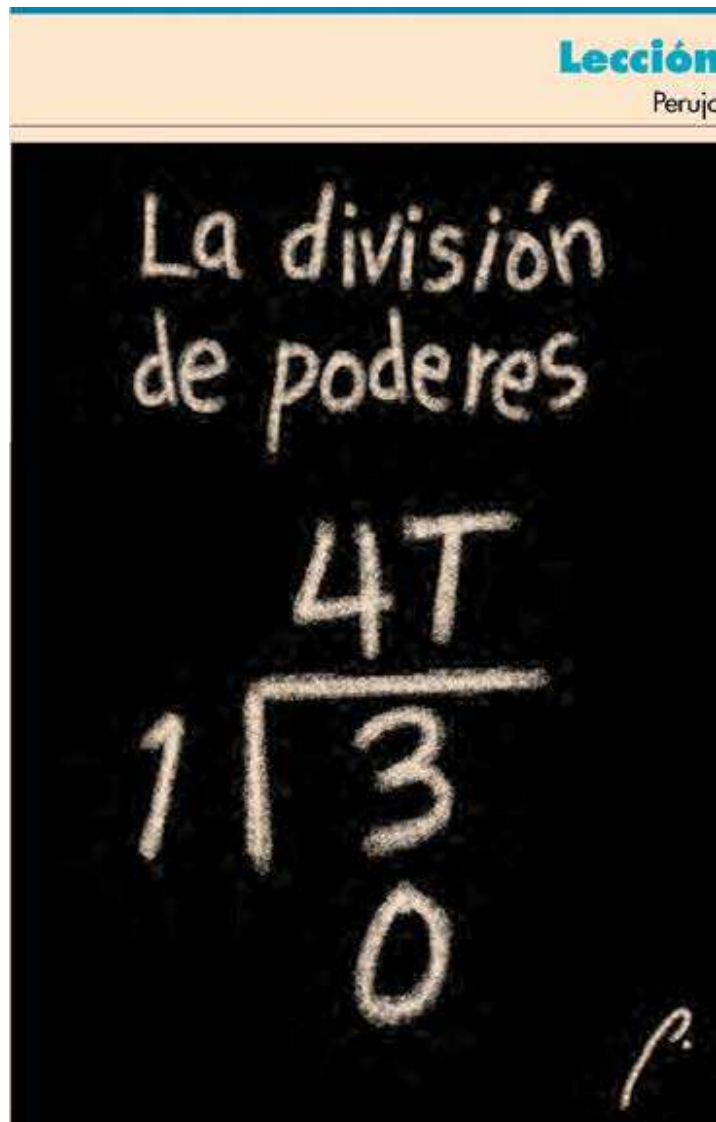 Lección
Perujo
La división
de poderes
4T
1 3
0
P.